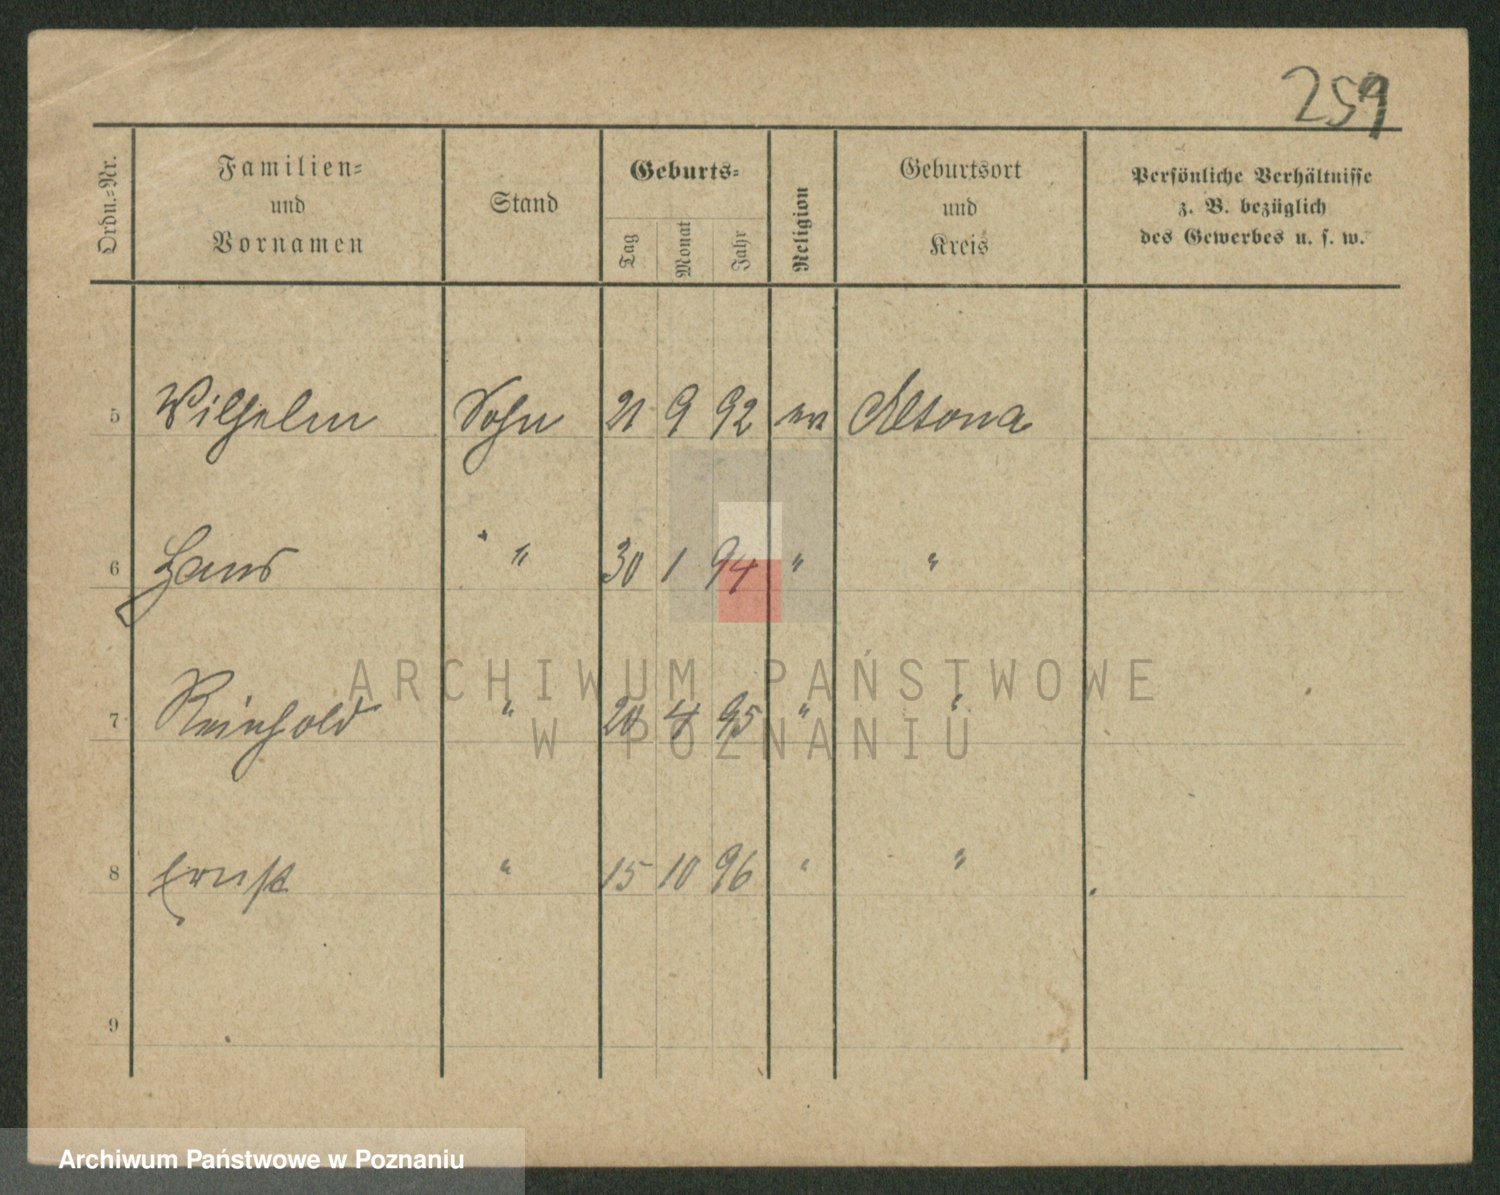 259
Ordn.-Nr.
Familien-
und
Vornamen
Stand
Geburts-
Tag
Monat
Jahr
Religion
Geburtsort
und
Kreis
Persönliche Verhältnisse
z. B. bezüglich
des Gewerbes u. s. w.
5 Wilhelm Sohn 21 9 92 ev Altona
6 Hans " 30 1 94 " "
7 Reinhold " 4 95 " "
8 Ernst " 15 10 96 " "
9
ARCHIWUM PAŃSTWOWE
W POZNANIU
Archiwum Państwowe w Poznaniu